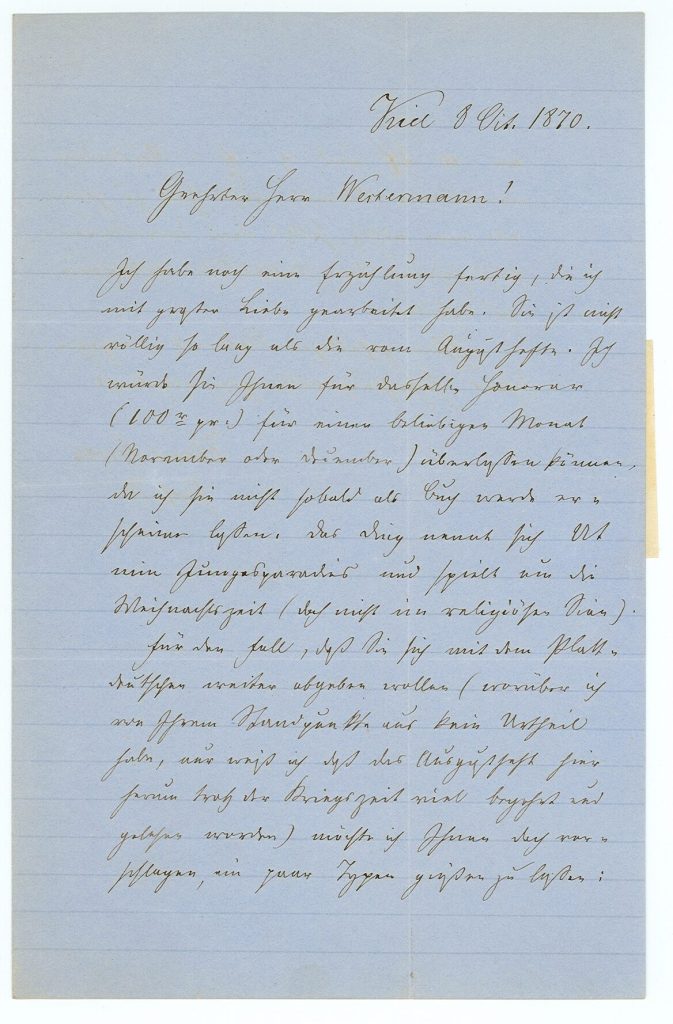 Kiel 8 Oct. 1870.
Geehrter Herr Westermann!
Ich habe noch eine Erzählung fertig, die ich
mit großer Liebe gearbeitet habe. Sie ist nicht
völlig so lang als die vom Augusthefte. Ich
würde sie Ihnen für dasselbe Honorar
(100 r pr.) für einen beliebigen Monat
(November oder December) überlassen können,
da ich sie nicht sobald als Buch werde er=
scheinen lassen. Das Ding nennt sich Ut
min Jungsparadies und spielt um die
Weihnachtszeit (doch nicht im religiösen Sinn).
Für den Fall, daß Sie sich mit dem Platt=
deutschen weiter abgeben wollen (worüber ich
von Ihrem Standpunkte aus kein Urtheil
habe, nur weiß ich daß das Augustheft hier
herum trotz der Kriegszeit viel begehrt und
gelesen worden) möchte ich Ihnen doch vor=
schlagen, ein paar Typen gießen zu lassen: